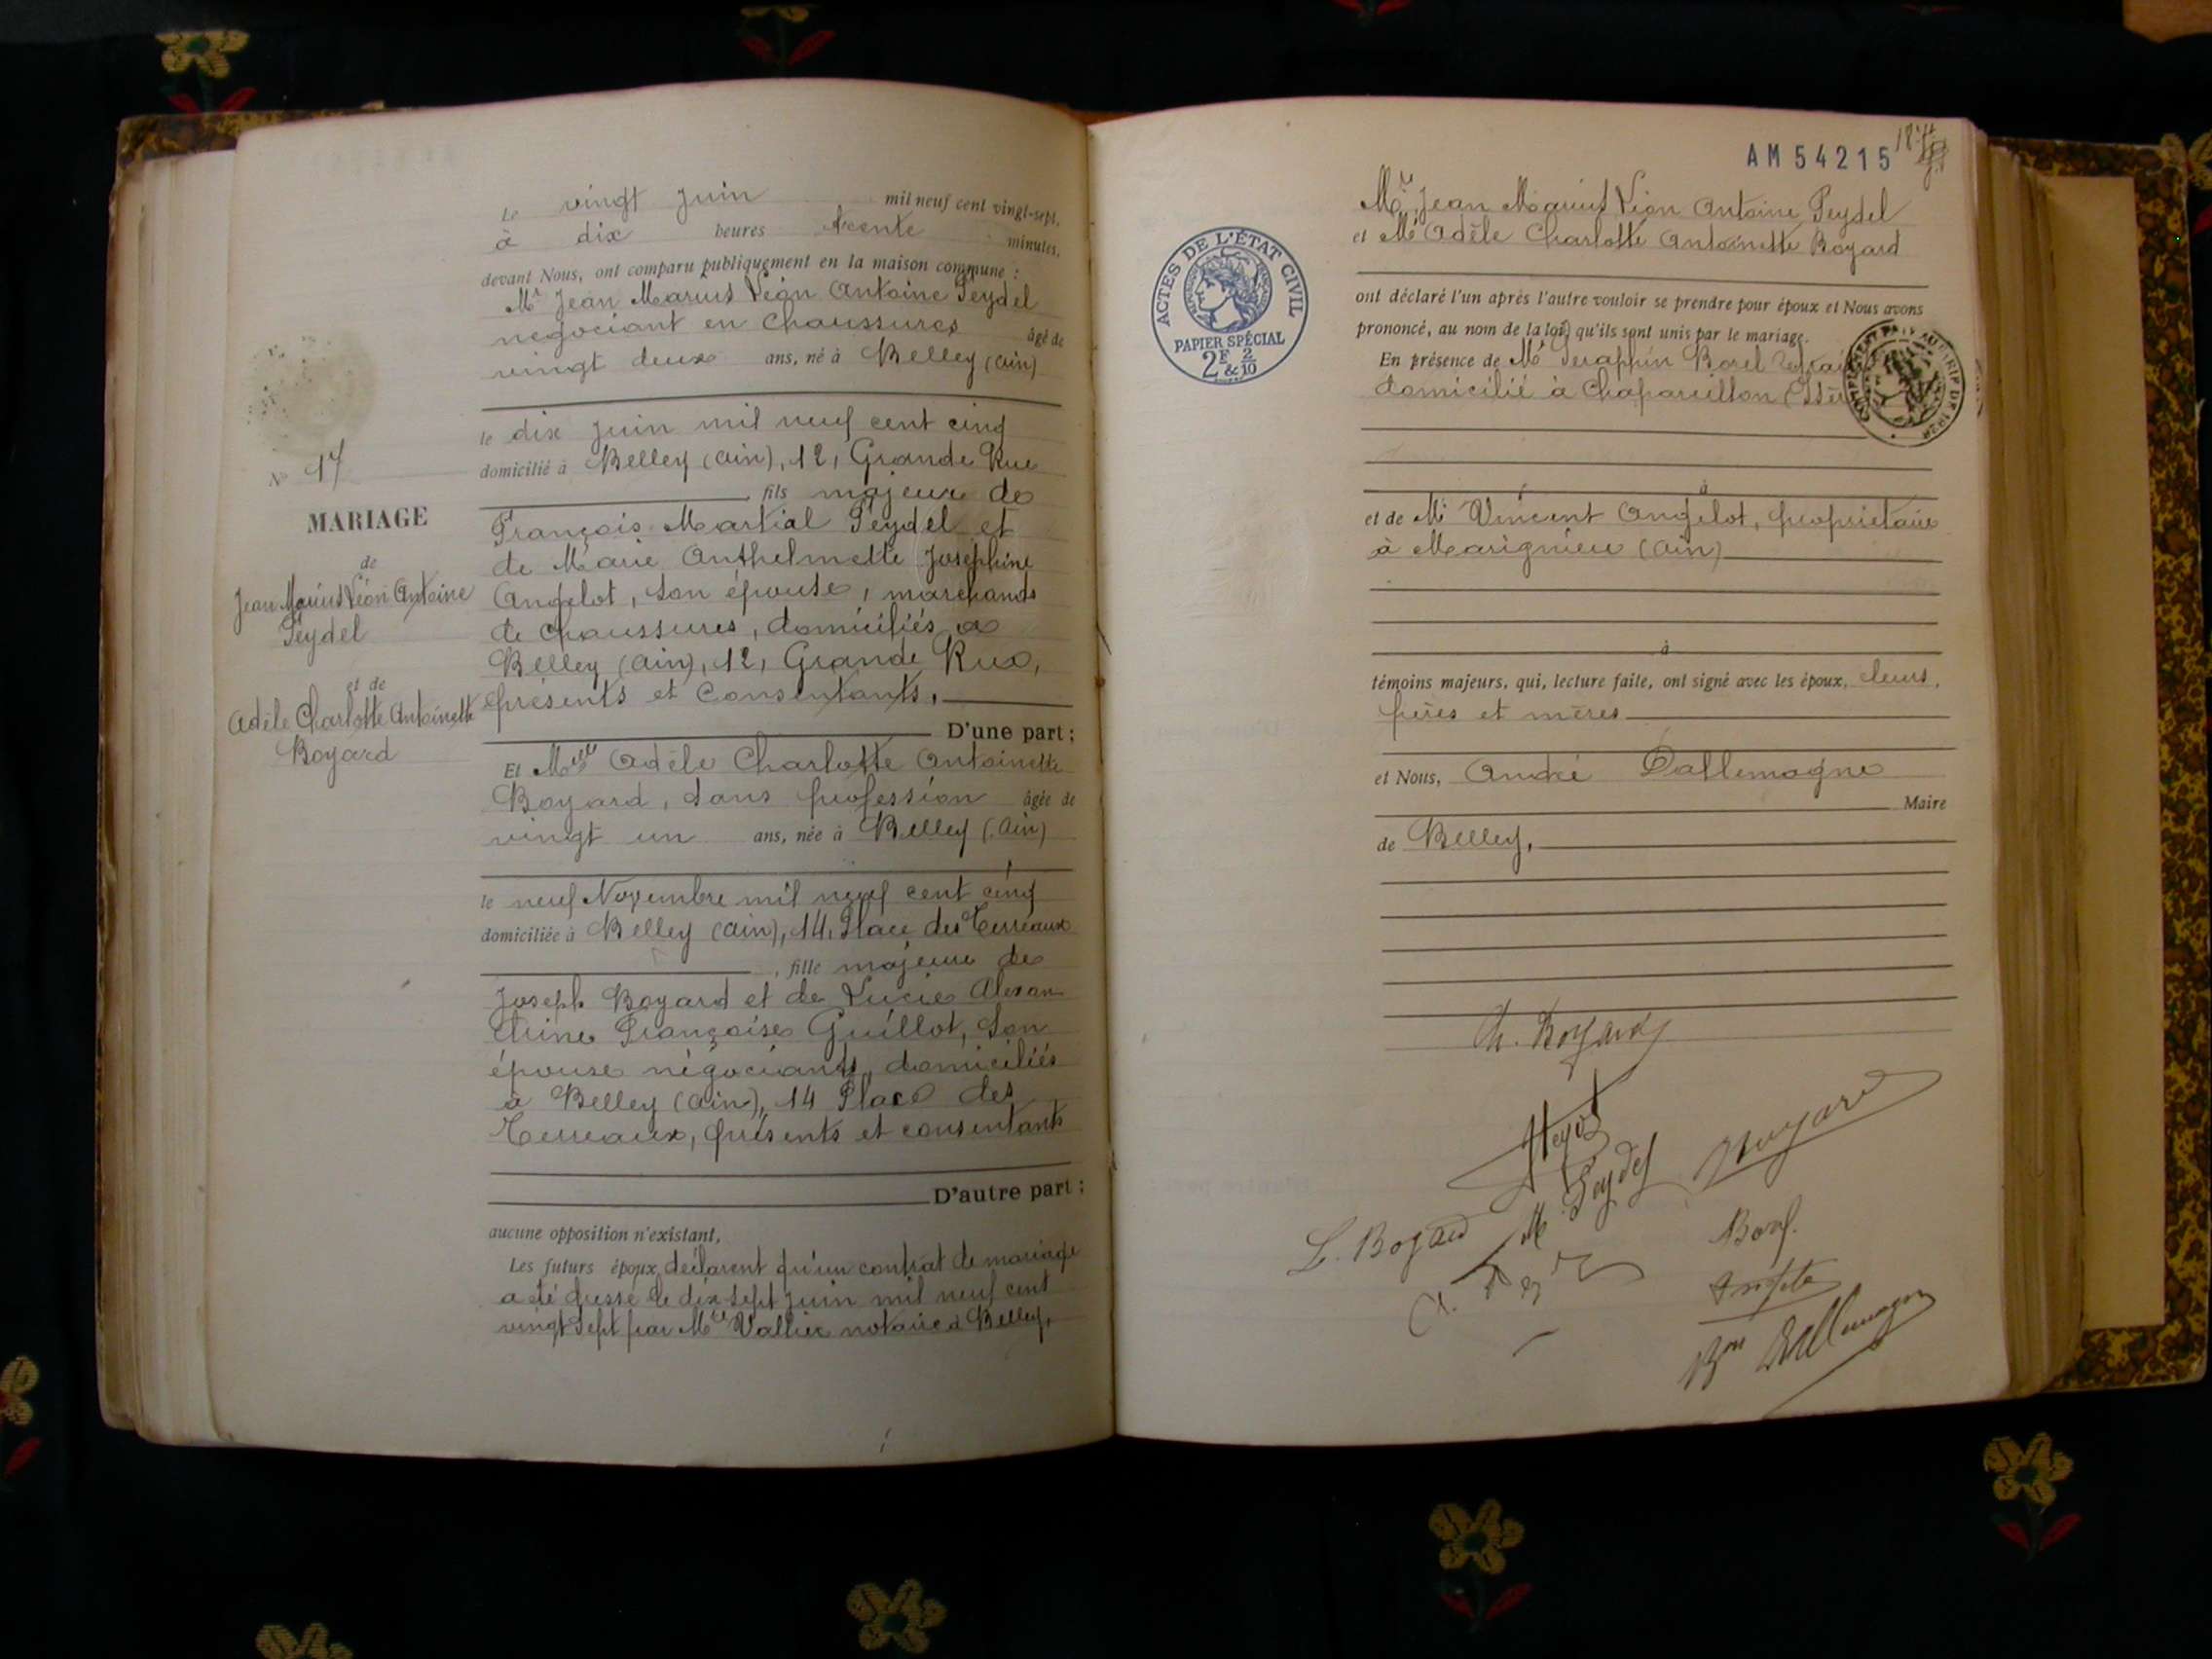 Le vingt Juin mil neuf cent vingt-sept,
à dix heures trente minutes,
devant Nous, ont comparu publiquement en la maison commune :
Mr Jean Marius Léon Antoine Peydel
negociant en Chaussures âgé de
vingt deux ans, né à Belley (Ain)
le dix juin mil neuf cent cinq
domicilié à Belley (Ain), 12, Grande Rue
fils majeur de
François Martial Peydel et
de Marie Anthelmette Joséphine
Angelot, son épouse, marchands
de chaussures, domiciliés à
Belley (Ain), 12, Grande Rue,
présents et consentants,
D'une part ;
Et Melle Adèle Charlotte Antoinette
Boyard, sans profession âgée de
vingt un ans, née à Belley (Ain)
le neuf Novembre mil neuf cent cinq
domiciliée à Belley (Ain), 14, Place des Terreaux
, fille majeure de
Joseph Boyard et de Lucie Alexan
drine Françoise Guillot, son
épouse négociants, domiciliés
à Belley (Ain), 14 Place des
Terreaux, présents et consentants
D'autre part ;
aucune opposition n'existant,
Les futurs époux déclarent qu'un contrat de mariage
a été dressé le dix-sept juin mil neuf cent
vingt sept par Me Vallier notaire à Belley,
No 17
MARIAGE
de
Jean Marius Léon Antoine
Peydel
et de
Adèle Charlotte Antoinette
Boyard
AM 54215
Mr Jean Marius Léon Antoine Peydel
et Me Adèle Charlotte Antoinette Boyard
ont déclaré l'un après l'autre vouloir se prendre pour époux et Nous avons
prononcé, au nom de la loi, qu'ils sont unis par le mariage.
En présence de Mr Séraphin Borel
domicilié à Chapareillan
à
et de Mr Vincent Angelot, propriétaire
à Marignieu (Ain)
à
témoins majeurs, qui, lecture faite, ont signé avec les époux, leurs
pères et mères
et Nous, André Dallemagne
Maire
de Belley,
ACTES DE L'ÉTAT CIVIL
PAPIER SPÉCIAL
2F & 2/10
Ch. Boyard
Boyard
M. Peydel
L. Boyard
Borel
Bon Dallemagne